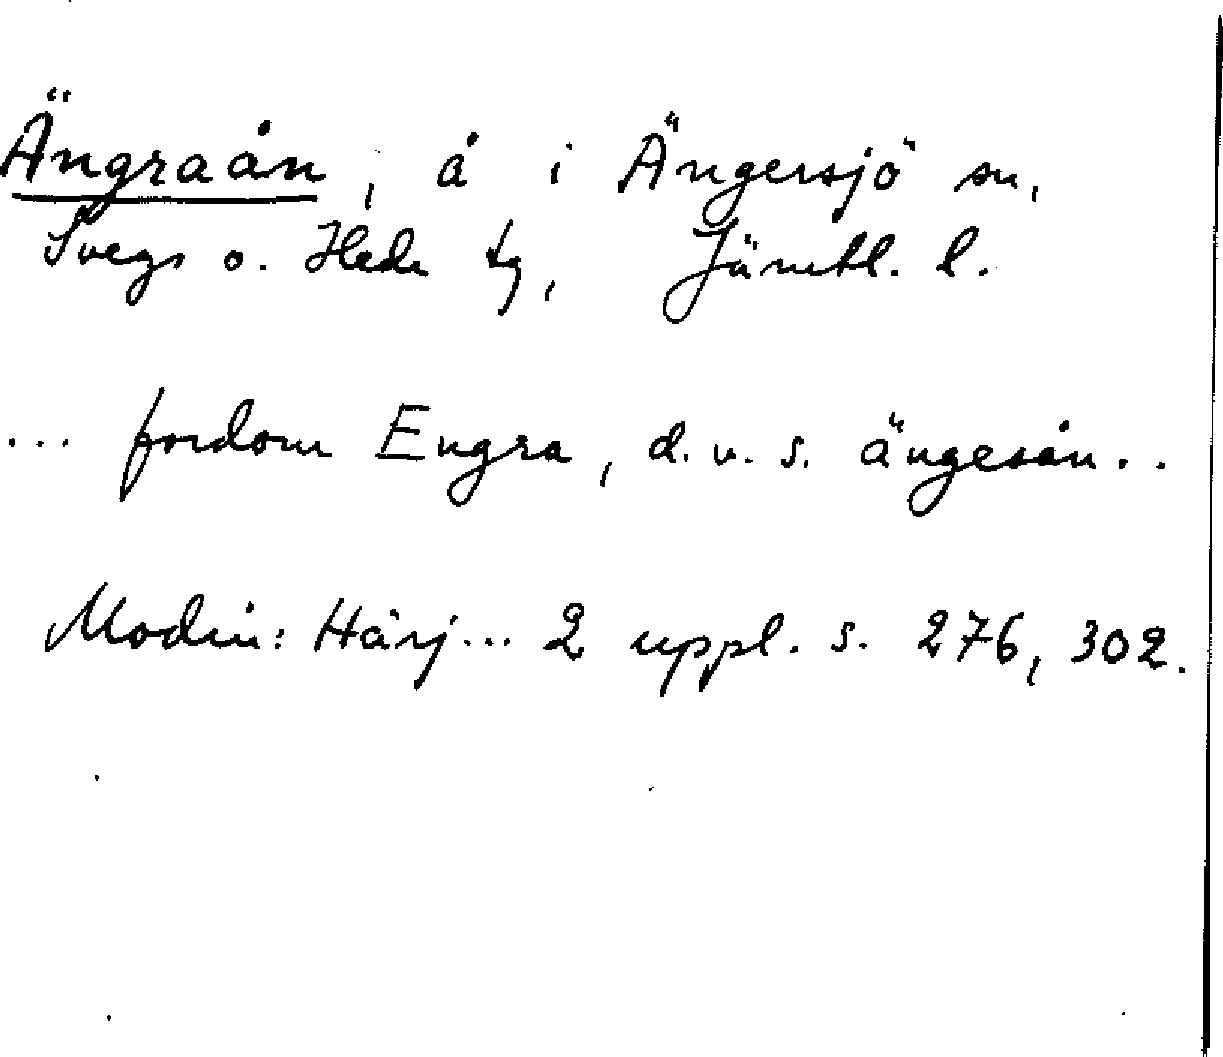 Ängraån, å i Ängersjö sn,
Svegs o. Hede tg, Jämtl. l.
... fordom Engra, d.v.s. ängesån..
Modin: Härj... 2 uppl. s. 276, 302.